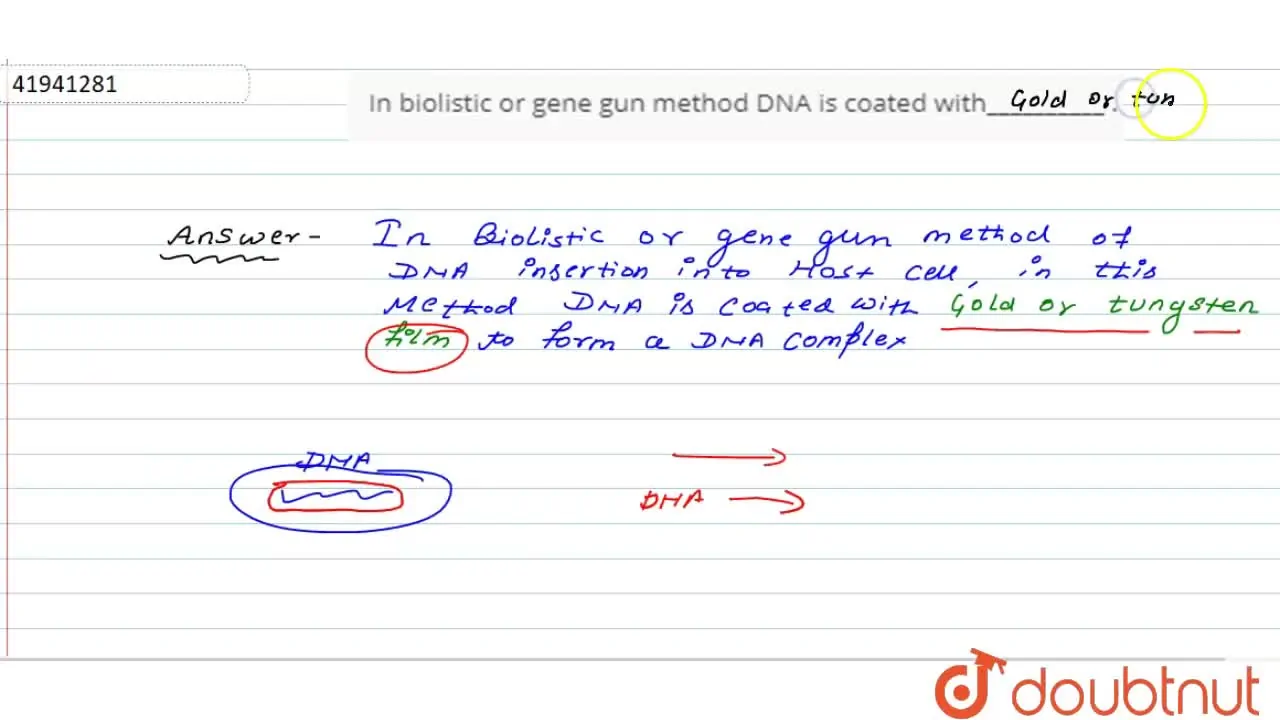 41941281
In biolistic or gene gun method DNA is coated with__________. Gold or tun
Answer- In Biolistic or gene gun method of
DNA insertion into Host cell, in this
Method DNA is coated with Gold or tungsten
film to form a DNA complex
DNA
DNA
doubtnut